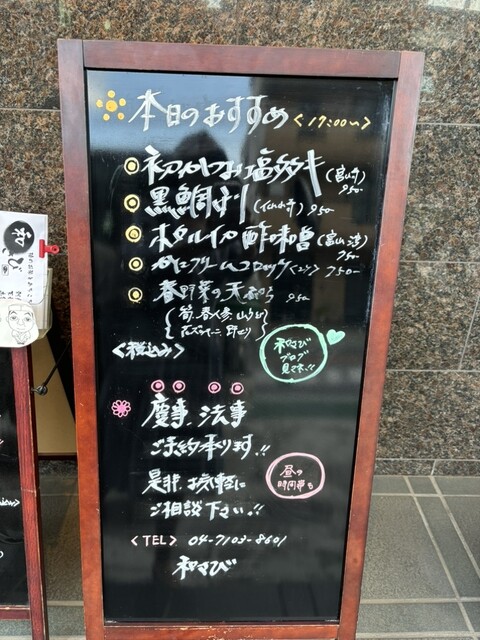 本日のおすすめ <17:00〜>
初かつお塩タタキ
950
黒鯛造り
950
ホタルイカ酢味噌 (富山湾)
750-
かにクリームコロッケ 750-
春野菜の天ぷら 950
<税込み>
和さび
ブログ
見てネ!!
慶事、法事
ご予約承ります!!
昼の
時間帯も
是非、お気軽に
ご相談下さい!!
<TEL> 04-7103-8601
和さび